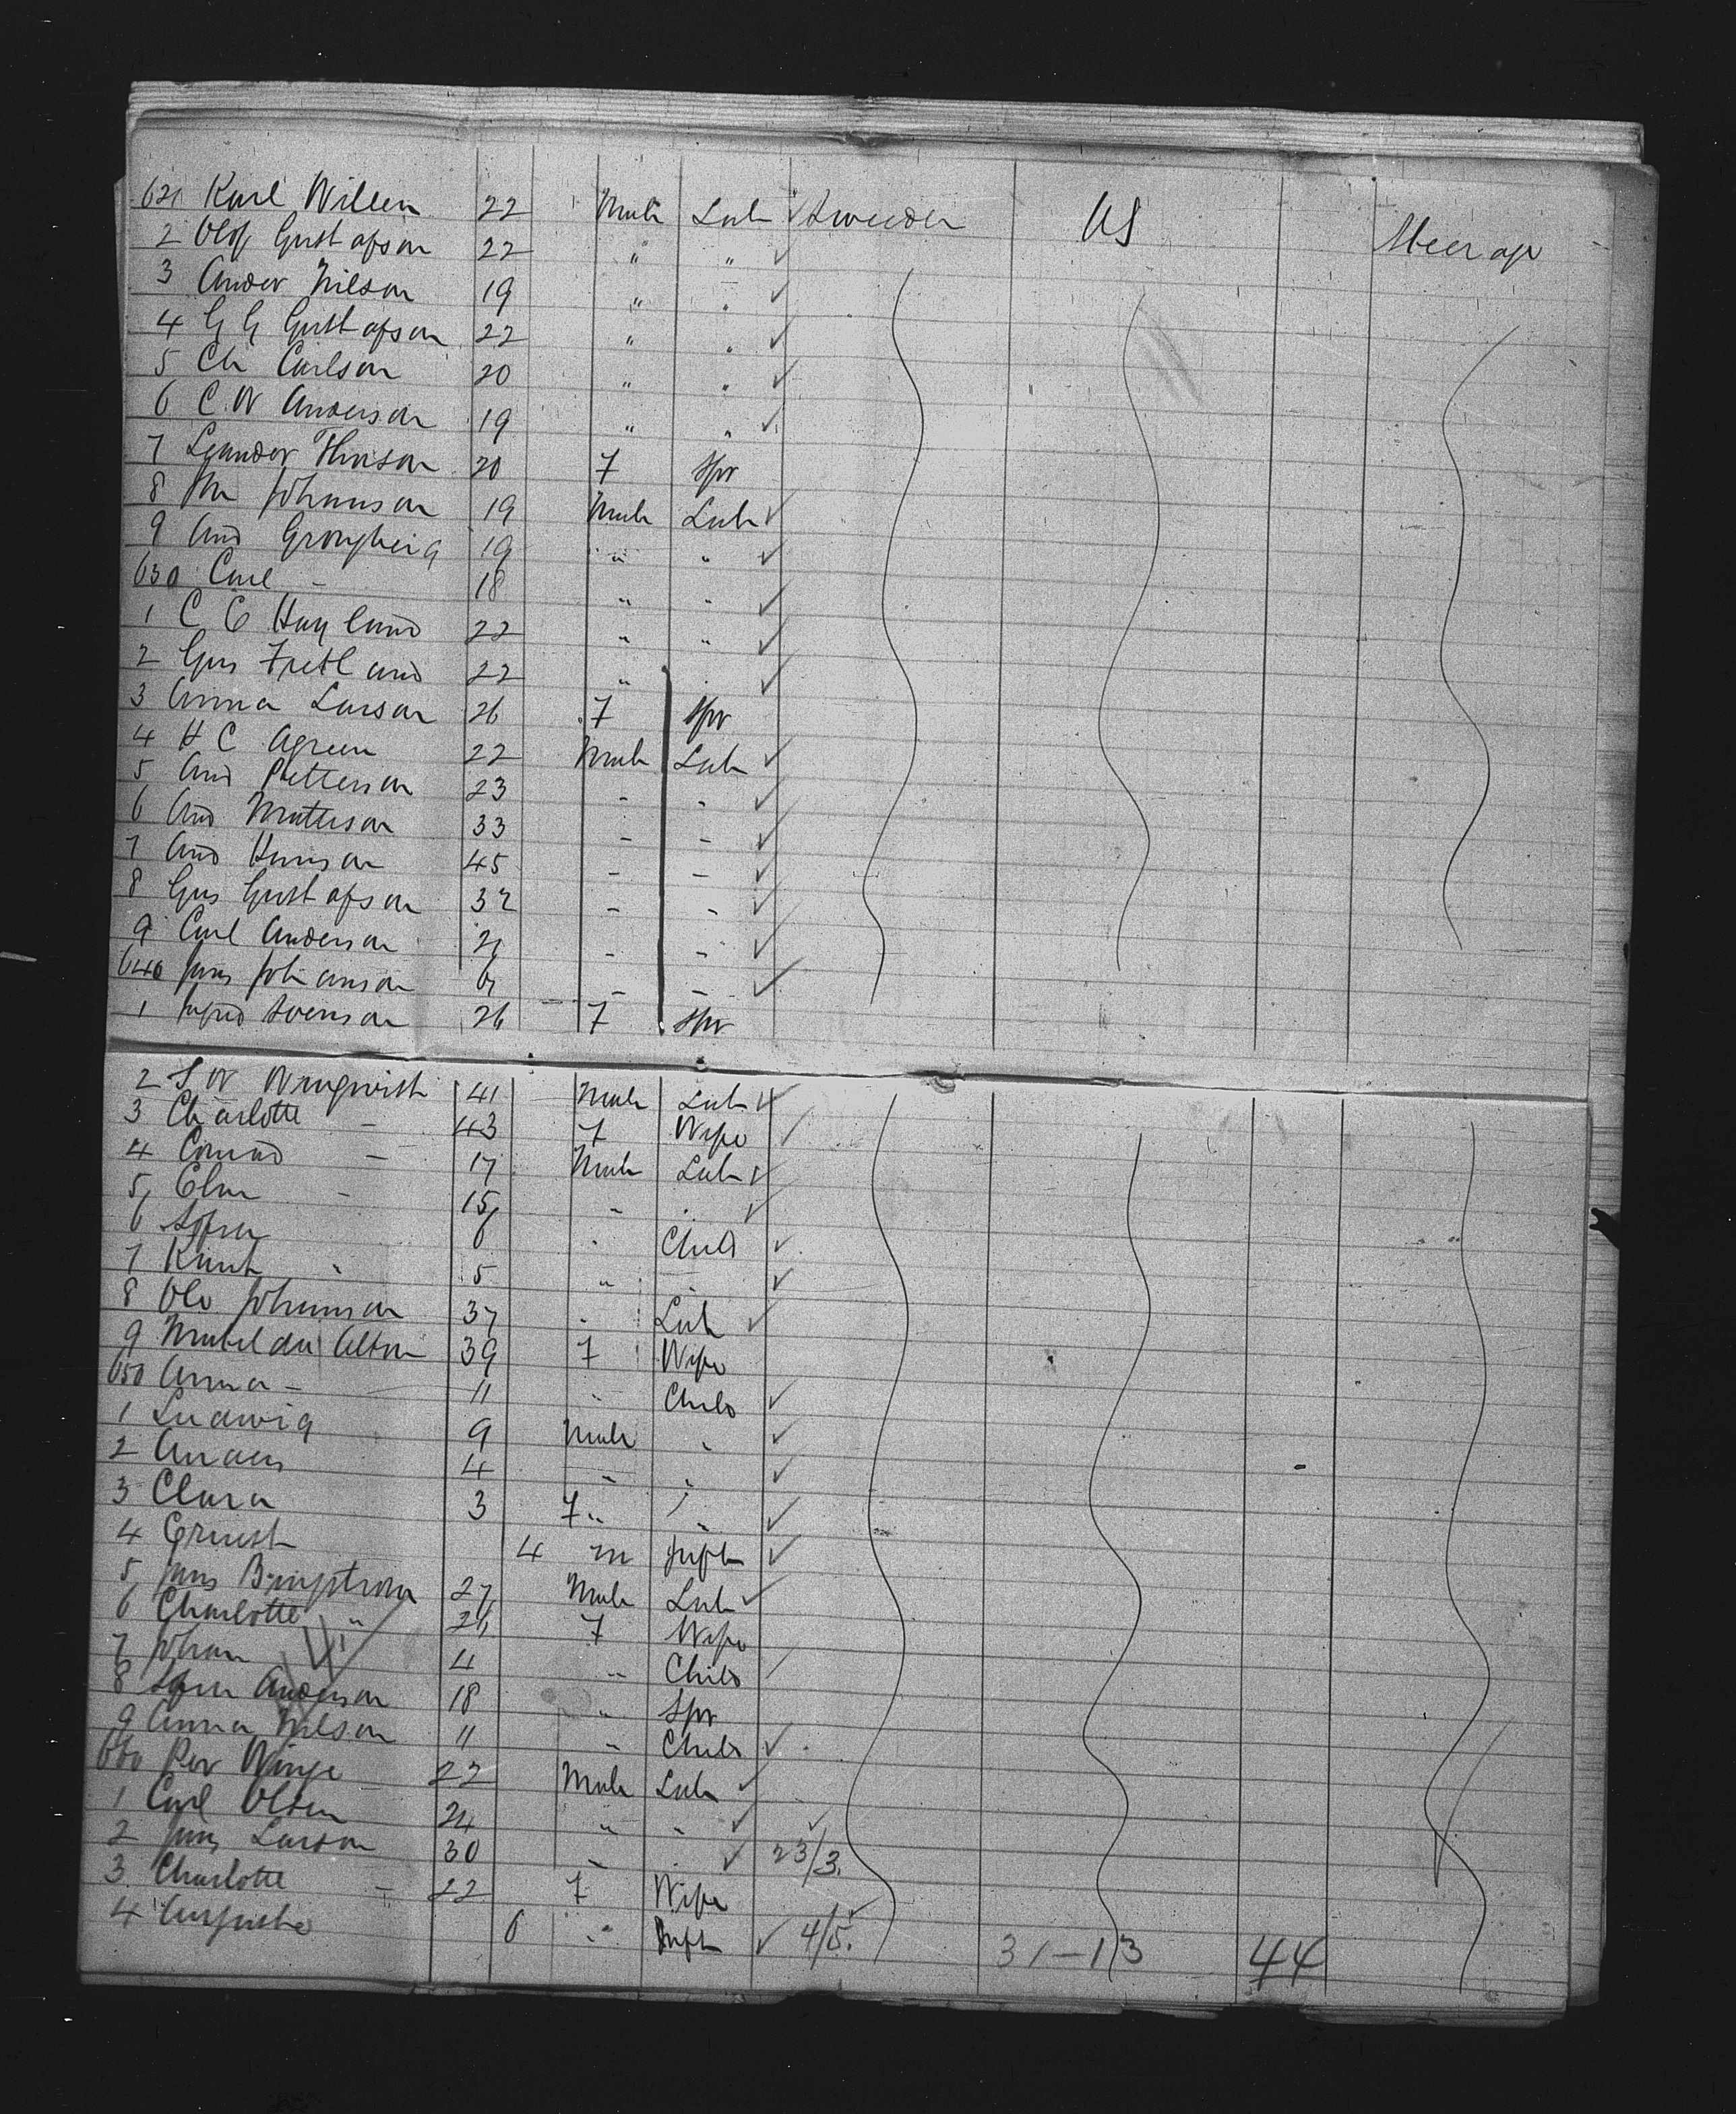 621 Karl Willen 22 Male Lab ✓ Sweeden US Steerage
2 Olof Gustafson 22 " " ✓
3 Ander Nilson 19 " " ✓
4 G G Gustafson 22 " " ✓
5 Ch Carlson 20 " " ✓
6 C. W Anderson 19 " " ✓
7 Leander 20 F Spr
8 Johannson 19 Male Lab ✓
9 And Grongberg 19 " " ✓
630 Carl - 18 " " ✓
1 C E Haglund 22 " " ✓
2 Gus 22 " " ✓
3 Anna Larson 26 F Spr
4 H C Agreen 22 Male Lab ✓
5 And Petterson 23 - - ✓
6 And Matteson 33 - - ✓
7 And Hanson 45 - - ✓
8 Gus Gustafson 32 - - ✓
9 Carl Anderson 21 - - ✓
640 Jons Johanson - - ✓
1 Ingrid Svenson 26 F Spr
2 S W Wingwist 41 Male Lab ✓
3 Charlotte - 43 F Wife ✓
4 Conrad - 17 Male Lab ✓
5 - 15 " " ✓
6 6 " Child ✓
7 Knut " 5 " " ✓
8 Ole Johannson 37 " Lab ✓
9 Matilda 39 F Wife
650 Anna - 11 " Child ✓
1 Ludwig 9 Male " ✓
2 Anders 4 " " ✓
3 Clara 3 F " " ✓
4 Ernest 4 m Inft ✓
5 Jons Bengstrom 27 Male Lab ✓
6 Charlotte " 26 F Wife
7 Johan 4 " Child ✓
8 Anderson 18 " Spr
9 Anna Nilson 11 " Child ✓
660 Per Winge 22 Male Lab ✓
1 Carl Olsen 24 " " ✓ ✓
2 Jons Larson 30 " " ✓ 23/3.
3 Charlotte - 22 F Wife ✓
4 Auguste 6 " Inft ✓ 4/5. 31-13 44